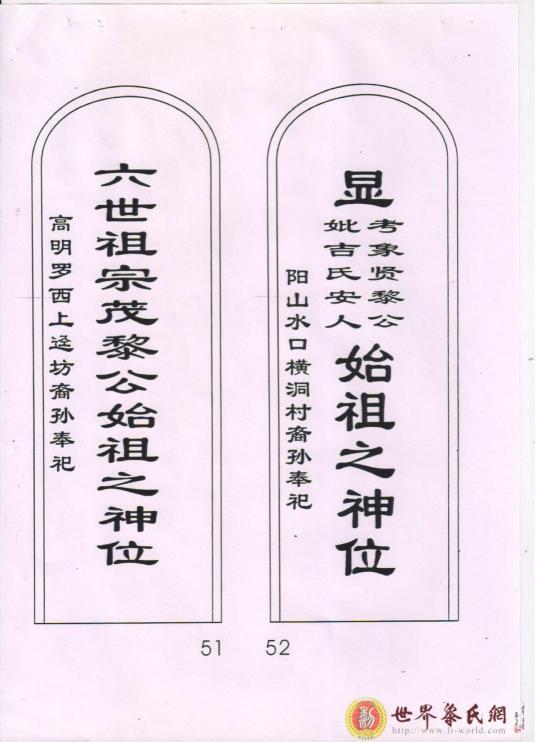 显
考象贤黎公
妣吉氏安人
始祖之神位
阳山水口横洞村裔孙奉祀
六世祖宗茂黎公始祖之神位
高明罗西上迳坊裔孙奉祀
51 52
世界黎氏網
http://www.li-world.com